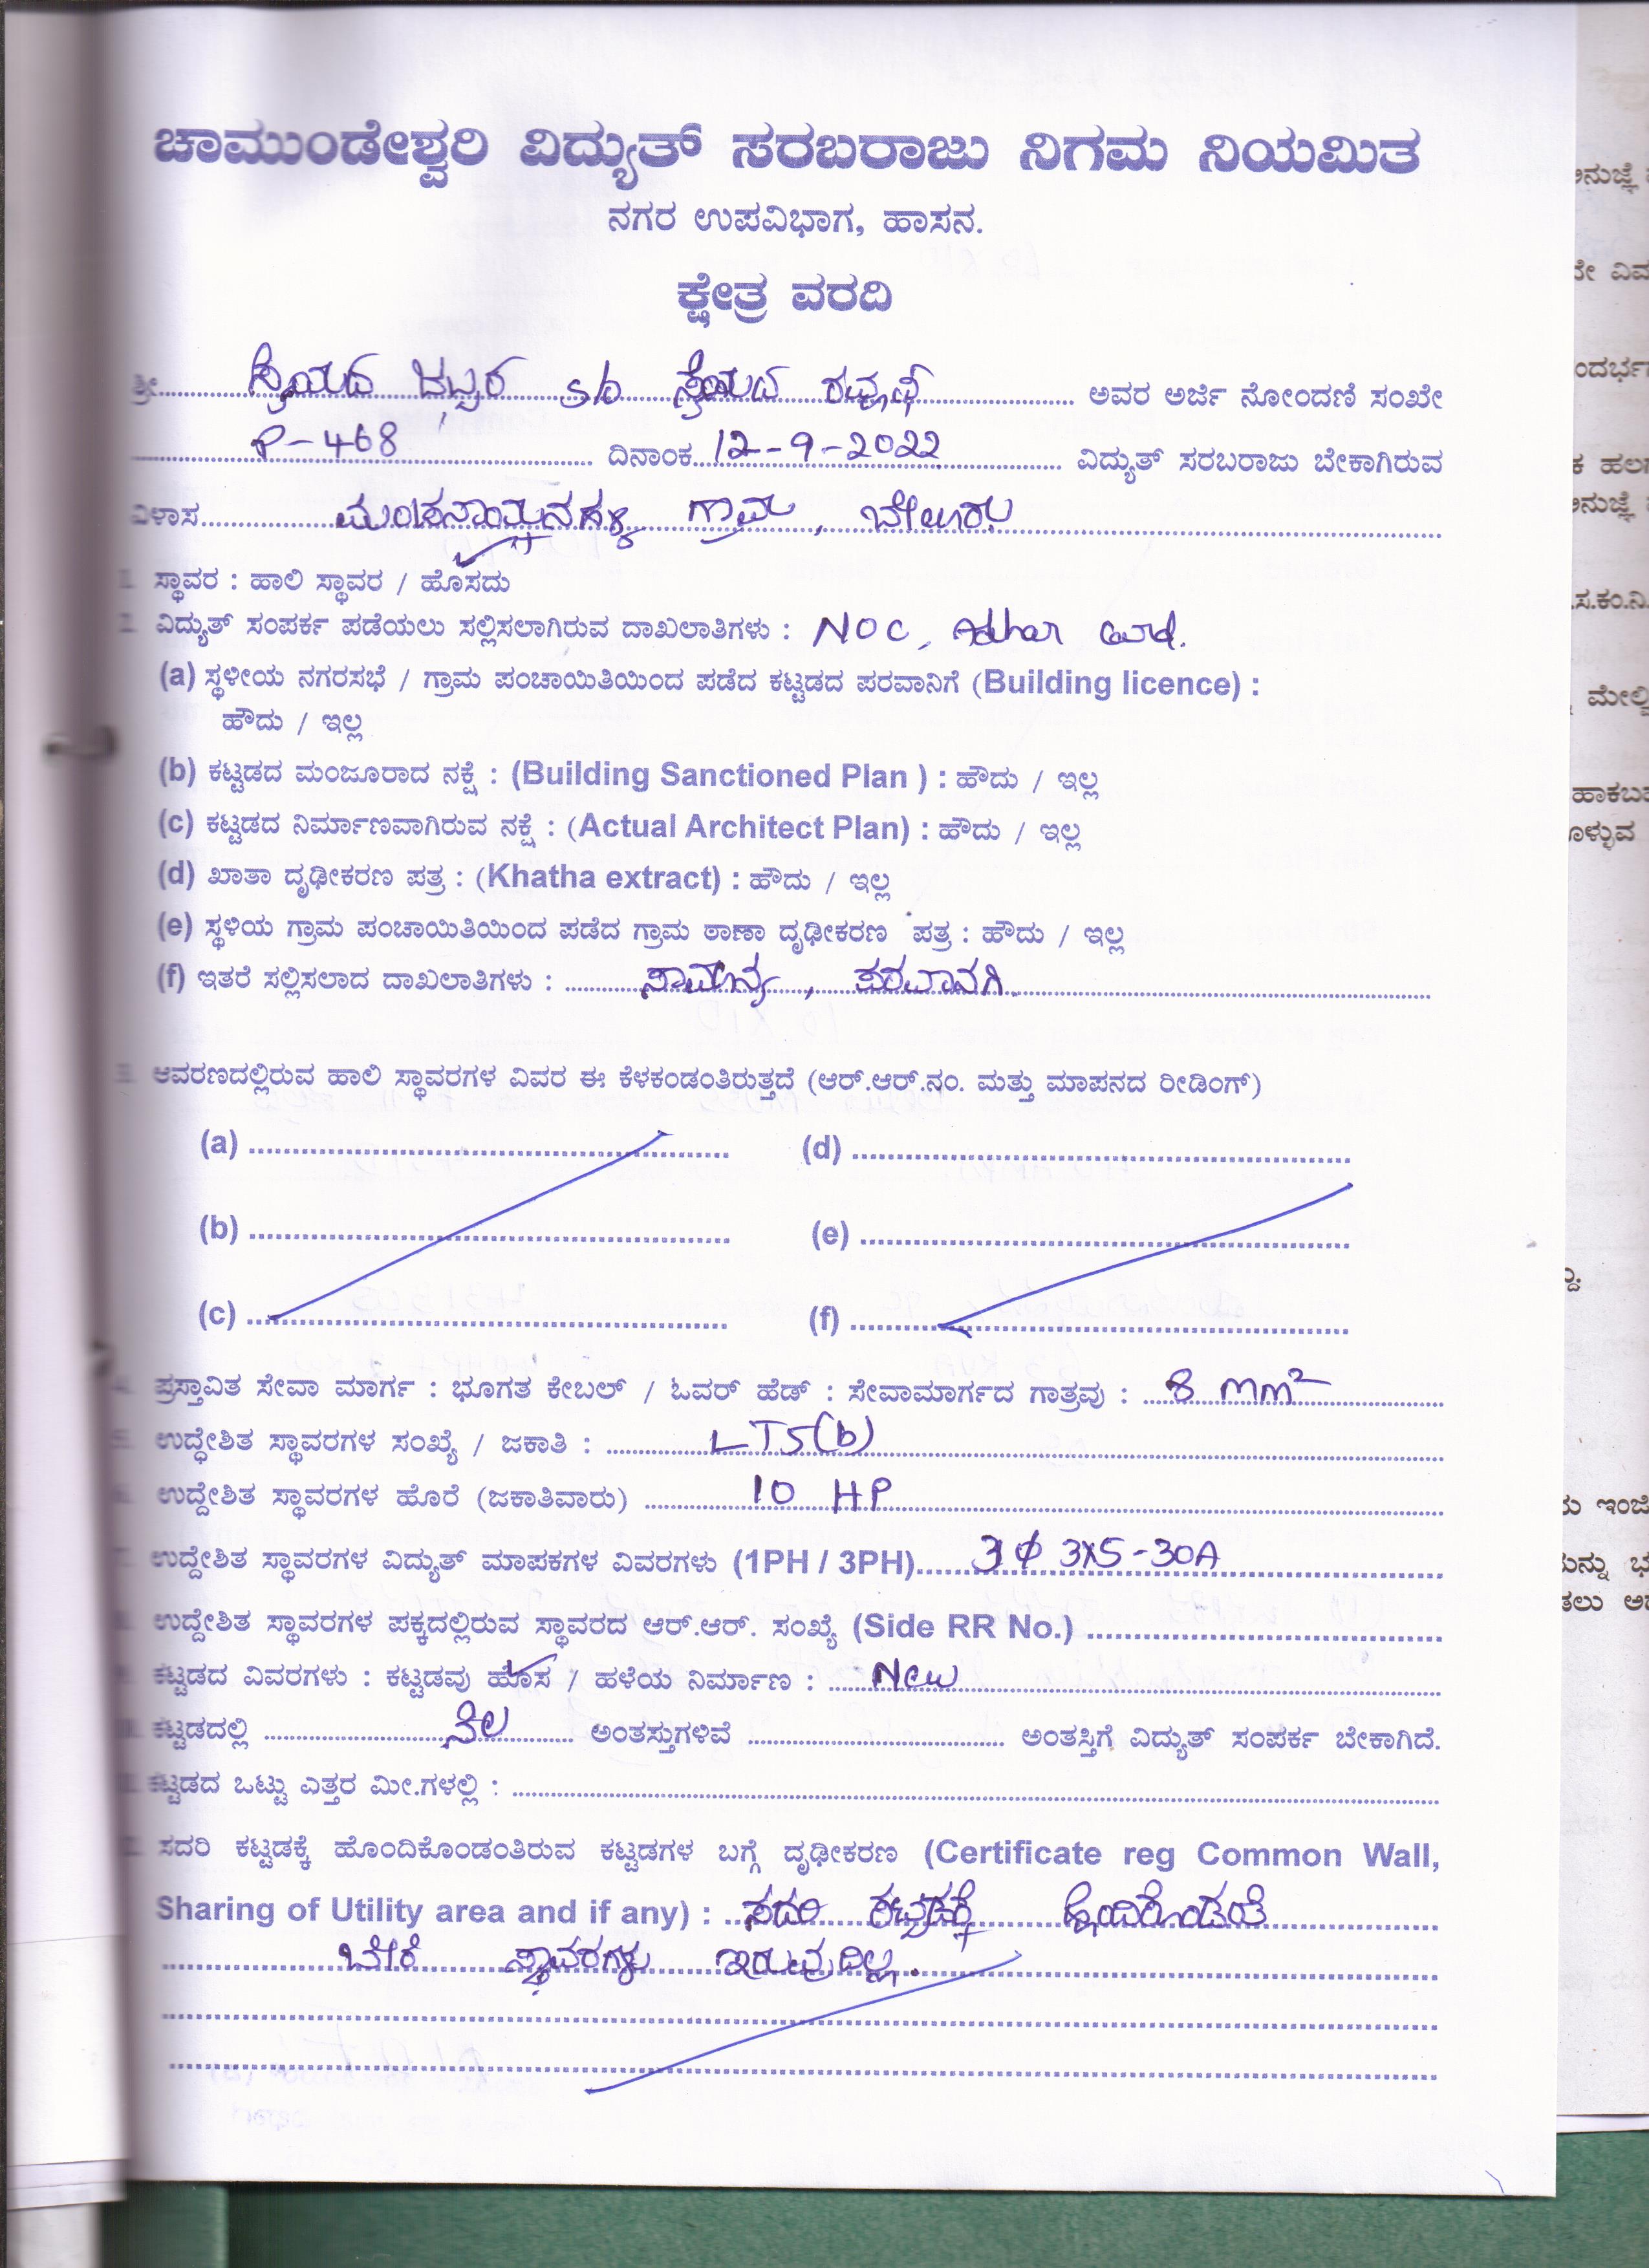 ಚಾಮುಂಡೇಶ್ವರಿ ವಿದ್ಯುತ್ ಸರಬರಾಜು ನಿಗಮ ನಿಯಮಿತ
ನಗರ ಉಪವಿಭಾಗ, ಹಾಸನ.
ಕ್ಷೇತ್ರ ವರದಿ
ಶ್ರೀ S/o ಅವರ ಅರ್ಜಿ ನೋಂದಣಿ ಸಂಖೇ
P-468 ದಿನಾಂಕ 12-9-2022 ವಿದ್ಯುತ್ ಸರಬರಾಜು ಬೇಕಾಗಿರುವ
ವಿಳಾಸ ಗ್ರಾಮ, ಬೇಲೂರು
1. ಸ್ಥಾವರ : ಹಾಲಿ ಸ್ಥಾವರ / ಹೊಸದು
2. ವಿದ್ಯುತ್ ಸಂಪರ್ಕ ಪಡೆಯಲು ಸಲ್ಲಿಸಲಾಗಿರುವ ದಾಖಲಾತಿಗಳು : NOC, Adhar card.
(a) ಸ್ಥಳೀಯ ನಗರಸಭೆ / ಗ್ರಾಮ ಪಂಚಾಯಿತಿಯಿಂದ ಪಡೆದ ಕಟ್ಟಡದ ಪರವಾನಿಗೆ (Building licence) :
ಹೌದು / ಇಲ್ಲ
(b) ಕಟ್ಟಡದ ಮಂಜೂರಾದ ನಕ್ಷೆ : (Building Sanctioned Plan ) : ಹೌದು / ಇಲ್ಲ
(c) ಕಟ್ಟಡದ ನಿರ್ಮಾಣವಾಗಿರುವ ನಕ್ಷೆ : (Actual Architect Plan) : ಹೌದು / ಇಲ್ಲ
(d) ಖಾತಾ ದೃಢೀಕರಣ ಪತ್ರ : (Khatha extract) : ಹೌದು / ಇಲ್ಲ
(e) ಸ್ಥಳಿಯ ಗ್ರಾಮ ಪಂಚಾಯಿತಿಯಿಂದ ಪಡೆದ ಗ್ರಾಮ ಠಾಣಾ ದೃಢೀಕರಣ ಪತ್ರ : ಹೌದು / ಇಲ್ಲ
(f) ಇತರೆ ಸಲ್ಲಿಸಲಾದ ದಾಖಲಾತಿಗಳು : ಸಾಮಾನ್ಯ, ಪರವಾನಗಿ
3. ಆವರಣದಲ್ಲಿರುವ ಹಾಲಿ ಸ್ಥಾವರಗಳ ವಿವರ ಈ ಕೆಳಕಂಡಂತಿರುತ್ತದೆ (ಆರ್.ಆರ್.ನಂ. ಮತ್ತು ಮಾಪನದ ರೀಡಿಂಗ್)
(a) (d)
(b) (e)
(c) (f)
4. ಪ್ರಸ್ತಾವಿತ ಸೇವಾ ಮಾರ್ಗ : ಭೂಗತ ಕೇಬಲ್ / ಓವರ್ ಹೆಡ್ : ಸೇವಾಮಾರ್ಗದ ಗಾತ್ರವು : 8 mm²
5. ಉದ್ದೇಶಿತ ಸ್ಥಾವರಗಳ ಸಂಖ್ಯೆ / ಜಕಾತಿ : LT5(b)
6. ಉದ್ದೇಶಿತ ಸ್ಥಾವರಗಳ ಹೊರೆ (ಜಕಾತಿವಾರು) 10 HP
7. ಉದ್ದೇಶಿತ ಸ್ಥಾವರಗಳ ವಿದ್ಯುತ್ ಮಾಪಕಗಳ ವಿವರಗಳು (1PH / 3PH) 3ϕ 3X5-30A
8. ಉದ್ದೇಶಿತ ಸ್ಥಾವರಗಳ ಪಕ್ಕದಲ್ಲಿರುವ ಸ್ಥಾವರದ ಆರ್.ಆರ್. ಸಂಖ್ಯೆ (Side RR No.)
9. ಕಟ್ಟಡದ ವಿವರಗಳು : ಕಟ್ಟಡವು ಹೊಸ / ಹಳೆಯ ನಿರ್ಮಾಣ : New
ಕಟ್ಟಡದಲ್ಲಿ ನೆಲ ಅಂತಸ್ತುಗಳಿವೆ ಅಂತಸ್ತಿಗೆ ವಿದ್ಯುತ್ ಸಂಪರ್ಕ ಬೇಕಾಗಿದೆ.
ಕಟ್ಟಡದ ಒಟ್ಟು ಎತ್ತರ ಮೀ.ಗಳಲ್ಲಿ :
ಸದರಿ ಕಟ್ಟಡಕ್ಕೆ ಹೊಂದಿಕೊಂಡಂತಿರುವ ಕಟ್ಟಡಗಳ ಬಗ್ಗೆ ದೃಢೀಕರಣ (Certificate reg Common Wall,
Sharing of Utility area and if any) : ಸದರಿ ಕಟ್ಟಡಕ್ಕೆ ಹೊಂದಿಕೊಂಡಂತೆ
ಬೇರೆ ಸ್ಥಾವರಗಳು ಇರುವುದಿಲ್ಲ.